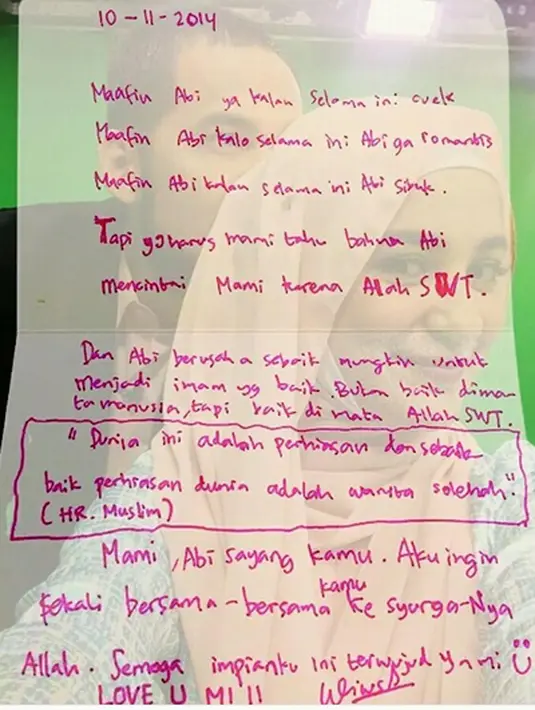 10-11-2014
Maafin Abi ya kalau selama ini cuek
Maafin Abi kalo selama ini Abi ga romantis
Maafin Abi kalau selama ini Abi sibuk.
Tapi yg harus mami tahu bahwa Abi
mencintai Mami karena Allah SWT.
Dan Abi berusaha sebaik mungkin untuk
menjadi imam yg baik. Bukan baik dima-
ta manusia, tapi baik di mata Allah SWT.
"Dunia ini adalah perhiasan dan sebaik
baik perhiasan dunia adalah wanita solehah."
(HR. Muslim)
Mami, Abi sayang kamu. Aku ingin
sekali bersama-bersama kamu ke syurga-Nya
Allah. Semoga impianku ini terwujud ya mi
LOVE U MI!!